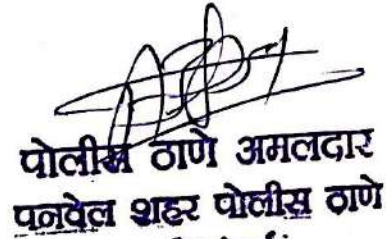 पोलीस ठाणे अमलदार
पनवेल शहर पोलीस ठाणे